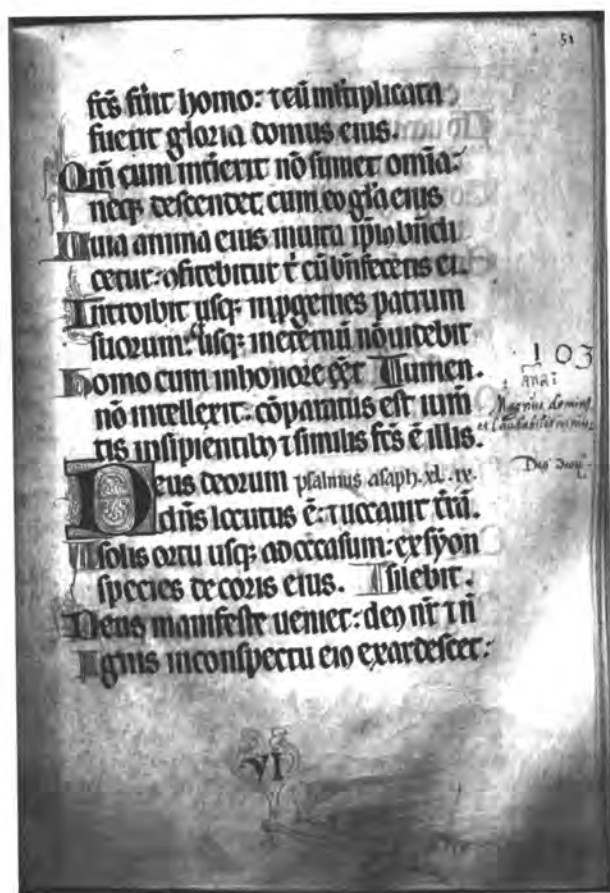 51
fc̄s fūit homo: ⁊ cū m̄tiplicata
fuerit gloria domus eius.
Qm̄ cum int̄ierit nō sumet om̄ia:
neqꝫ descendet cum eo gl̄a eius
Quia anima eius in uita ip̄iꝰ bn̄di
cetur: ꝯfitebitur t̄ cū bn̄feceris ei.
Introibit usqꝫ in ꝓgenies patrum
suorum: usqꝫ in et̄ernū nō uidebit
homo cum in honore eēt lumen.
nō intellexit: cōparatus est ium̄
tis insipientibꝫ ⁊ similis fc̄s ē illis.
Deus deorum psalmus asaph. xl. ix.
dn̄s locutus ē: ⁊ uocauit t̄rā.
A solis ortu usqꝫ ad occasum: ex syon
species decoris eius. silebit.
Deus manifeste ueniet: deꝰ nr̄ ⁊ n̄
Ignis in conspectu eiꝰ exardescet:
103
Magnus dominꝰ
et laudabilis nimis
VI